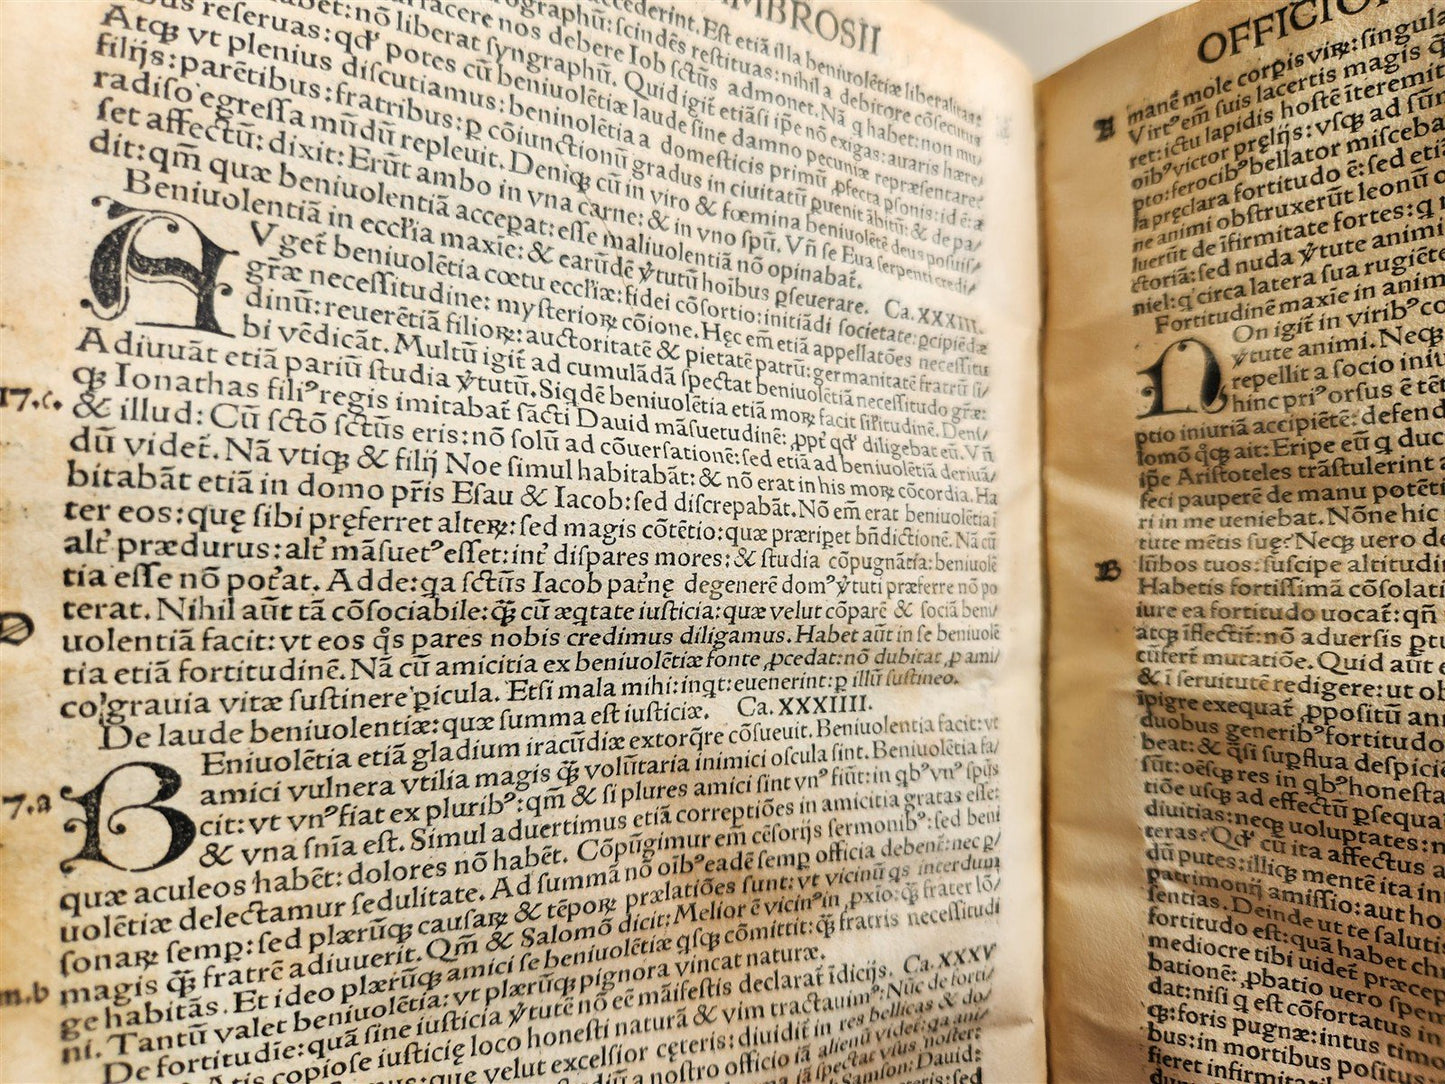 AMBROSII
bus reseruas: qd' potes cū beniuolētiæ laude sine damno pecuniæ repræsentare:
Atqꝫ vt plenius discutiamus: beninolētia a domesticis primū ꝓfecta ꝑsonis: id ē: a
filijs: parētibus: fratribus: ꝑ cōiunctionū gradus in ciuitatū ꝑuenit ābitū: & de pa/
radiso egressa mūdū repleuit. Deniqꝫ cū in viro & fœmina beniuolētē deus posuis/
set affectū: dixit: Erūt ambo in vna carne: & in vno spū. Vñ se Eua serpenti credi/
dit: qm̄ quæ beniuolentiā acceꝑat: esse maliuolentiā nō opinabat̄.
Beniuolentiā in ecclīa maxīe: & earūdē v̓tutū hoībus ꝑseuerare. Ca. XXXIII.
AVget̄ beniuolētia cœtu eccl'iæ: fidei cōsortio: initiādi societate: ꝑcipiēdæ
gr̄æ necessitudine: mysterioꝝ cōione. Hęc em̄ etiā appellatōes necessitu
dinū: reuerētiā filioꝝ: auctoritatē & pietatē patrū: germanitatē fratrū si/
bi vēdicāt. Multū igit̄ ad cumulādā spectat beniuolētiā necessitudo gr̄æ:
Adiuuāt etiā pariū studia v̓tutū. Siqdē beniuolētia etiā moꝝ facit sil'itudinē. Deni/
qꝫ Ionathas fili⁹ regis imitabat̄ sācti Dauid māsuetudinē: ꝓpt̄ qd' diligebat eū. Vñ
17.c.
& illud: Cū sctō sctūs eris: nō solū ad cōuersationē: sed etiā ad beniuolētiā deriuā/
dū videt̄. Nā vtiqꝫ & filij Noe simul habitabāt: & nō erat in his moꝝ cōcordia. Ha
bitabāt etiā in domo pr̄is Esau & Iacob: sed discrepabāt. Nō em̄ erat beniuolētia ī
ter eos: quę sibi pręferret alteꝝ: sed magis cōtētio: quæ præriꝑet bn̄dictionē. Nā cū
alt̄ prædurus: alt̄ māsuet⁹ esset: int̄ dispares mores: & studia cōpugnātia: beniuolē
tia esse nō pot̄at. Adde: qa sctūs Iacob pat̄nę degenerē dom⁹ v̓tuti præferre nō po
terat. Nihil aūt tā cōsociabile: qꝫ cū æqtate iusticia: quæ velut cōparē & sociā beni/
D
uolentiā facit: vt eos qs pares nobis credimus diligamus. Habet aūt in se beniuolē
tia etiā fortitudinē. Nā cū amicitia ex beniuolētiæ fonte ꝓcedat: nō dubitat ꝓ ami/
co grauia vitæ sustinere ꝑicula. Etsi mala mihi: inqt: euenerint: ꝑ illū sustineo.
De laude beniuolentiæ: quæ summa est iusticiæ. Ca. XXXIIII.
BEniuolētia etiā gladium iracūdiæ extorqre cōsueuit. Beniuolentia facit: vt
amici vulnera vtilia magis qꝫ volūtaria inimici oscula sint. Beniuolētia fa/
7.a
cit: vt vn⁹ fiat ex plurib⁹: qm̄ & si plures amici sint vn⁹ fiūt: in qb⁹ vn⁹ spūs
& vna snīa est. Simul aduertimus etiā correptiōes in amicitia gratas esse:
quæ aculeos habēt: dolores nō habēt. Cōpūgimur em̄ cēsorijs sermonib⁹: sed beni
uolētiæ delectamur sedulitate. Ad summā nō oīb⁹ eadē semꝑ officia debent̄: nec ꝑ/
sonaꝝ semꝑ: sed plærūqꝫ causaꝝ & tēpoꝝ prælatiōes sunt: vt vicinū qs interdum
magis qꝫ fratrē adiuuerit. Qm̄ & Salomō dicit: Melior ē vicin⁹ in ꝓxīo: qꝫ frater lō/
m.b
ge habitās. Et ideo plærūqꝫ amici se beniuolētiæ qsqꝫ cōmittit: qꝫ fratris necessitudi
ni. Tantū valet beniuolētia: vt plærūqꝫ pignora vincat naturæ.
De fortitudīe: quā sine iusticia v̓tutē nō eē māifestis declarat̄ īdicijs. Ca. XXXV
Atis copiose iusticię loco honesti naturā & vim tractauim⁹: Nūc de forti/
quæ velut excelsior cęteris: diuidit̄ in res bellicas & do/
OFFICIO
A
manē mole corpis vire: singula
Virt⁹ em̄ suis lacertis magis q
ret: ictu lapidis hostē īteremit
oib⁹ victor pręlijs: vsqꝫ ad sūm
pto: ferocib⁹ bellator misceba
la pręclara fortitudo ē: sed etiā
ne animi obstruxerūt leonū o
luerūt de īfirmitate fortes: q
ctoriā: sed nuda v̓tute animi
niel: q circa latera sua rugiēte
Fortitudinē maxīe in anim
NOn igit̄ in virib⁹ co
v̓tute animi. Neqꝫ
repellit a socio iniu
hinc pri⁹ orsus ē tēt
ptio iniuriā accipiētē: defend
lomō qqꝫ ait: Eripe eū q duc
ip̄e Aristoteles trāstulerint a
feci pauperē de manu potēti
ri in me ueniebat. Nōne hic
tute mētis suę? Neqꝫ uero de
B
lūbos tuos: suscipe altitudin
Habetis fortissimā cōsolati
iure ea fortitudo uocat̄: qn̄
atqꝫ īflectit̄: nō aduersis ꝑtu
cūfert̄ mutatiōe. Quid aūt e
& ī seruitutē redigere: ut ob
īpigre exequat̄ ꝓpositū ani
duobus generib⁹ fortitudo
beat: & qsi suꝑflua despicia
sūt: oēsqꝫ res in qb⁹ honesta
tiōe usqꝫ ad effectū ꝑsequa
diuitias: neqꝫ uoluptates: n
teras? Qd' cū ita affectus a
dū putes: illiqꝫ mentē ita in
patrimonij amissio: aut ho
sentias. Deinde ut te salutis
fortitudo est: quā habet chr
mediocre tibi uidet̄ præcep
bationē: ꝓbatio uero spem
dat: nisi q est cōfortatus in
qꝫ: foris pugnæ: intus timo
bus: in mortibus positus
fieret infirmitat